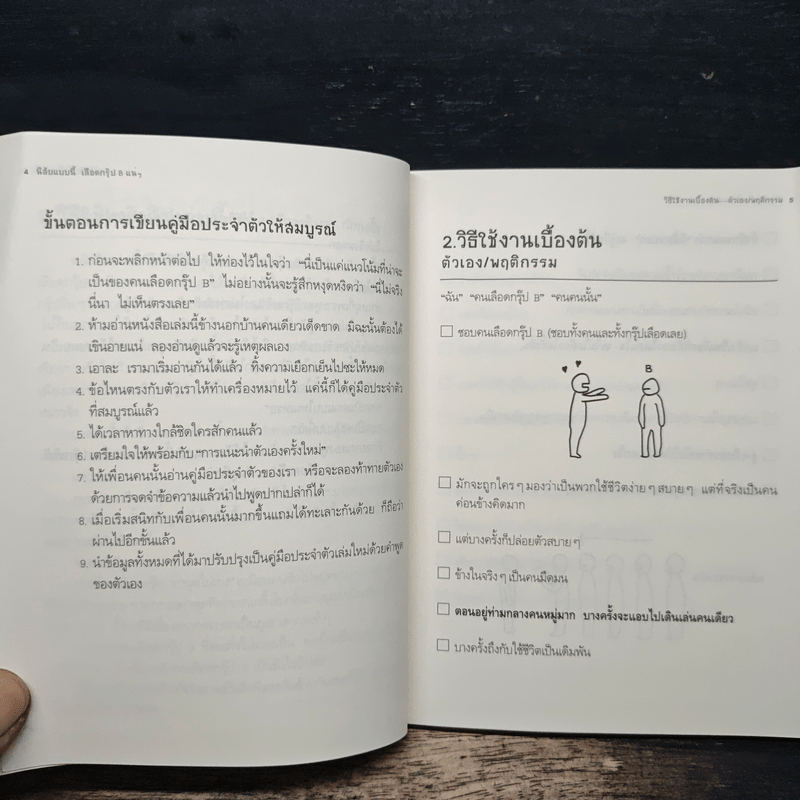 4 นิสัยแบบนี้ เลือดกรุ๊ป B แน่ๆ
ขั้นตอนการเขียนคู่มือประจำตัวให้สมบูรณ์
1. ก่อนจะพลิกหน้าต่อไป ให้ท่องไว้ในใจว่า “นี่เป็นแค่แนวโน้มที่น่าจะ
เป็นของคนเลือดกรุ๊ป B” ไม่อย่างนั้นจะรู้สึกหงุดหงิดว่า “นี่ไม่จริง
นี่นา ไม่เห็นตรงเลย”
2. ห้ามอ่านหนังสือเล่มนี้ข้างนอกบ้านคนเดียวเด็ดขาด มิฉะนั้นต้องได้
เขินอายแน่ ลองอ่านดูแล้วจะรู้เหตุผลเอง
3. เอาละ เรามาเริ่มอ่านกันได้แล้ว ทิ้งความเยือกเย็นไปซะให้หมด
4. ข้อไหนตรงกับตัวเราให้ทำเครื่องหมายไว้ แค่นี้ก็ได้คู่มือประจำตัว
ที่สมบูรณ์แล้ว
5. ได้เวลาหาทางใกล้ชิดใครสักคนแล้ว
6. เตรียมใจให้พร้อมกับ “การแนะนำตัวเองครั้งใหม่”
7. ให้เพื่อนคนนั้นอ่านคู่มือประจำตัวของเรา หรือจะลองท้าทายตัวเอง
ด้วยการจดจำข้อความแล้วนำไปพูดปากเปล่าก็ได้
8. เมื่อเริ่มสนิทกับเพื่อนคนนั้นมากขึ้นแถมได้ทะเลาะกันด้วย ก็ถือว่า
ผ่านไปอีกขั้นแล้ว
9. นำข้อมูลทั้งหมดที่ได้มาปรับปรุงเป็นคู่มือประจำตัวเล่มใหม่ด้วยคำพูด
ของตัวเอง
วิธีใช้งานเบื้องต้น—ตัวเอง/พฤติกรรม 5
2.วิธีใช้งานเบื้องต้น
ตัวเอง/พฤติกรรม
“ฉัน” “คนเลือดกรุ๊ป B” “คนคนนั้น”
ชอบคนเลือดกรุ๊ป B (ชอบทั้งคนและทั้งกรุ๊ปเลือดเลย)
B
มักจะถูกใครๆ มองว่าเป็นพวกใช้ชีวิตง่ายๆ สบายๆ แต่ที่จริงเป็นคน
ค่อนข้างคิดมาก
แต่บางครั้งก็ปล่อยตัวสบายๆ
ข้างในจริงๆ เป็นคนมืดมน
ตอนอยู่ท่ามกลางคนหมู่มาก บางครั้งจะแอบไปเดินเล่นคนเดียว
บางครั้งถึงกับใช้ชีวิตเป็นเดิมพัน